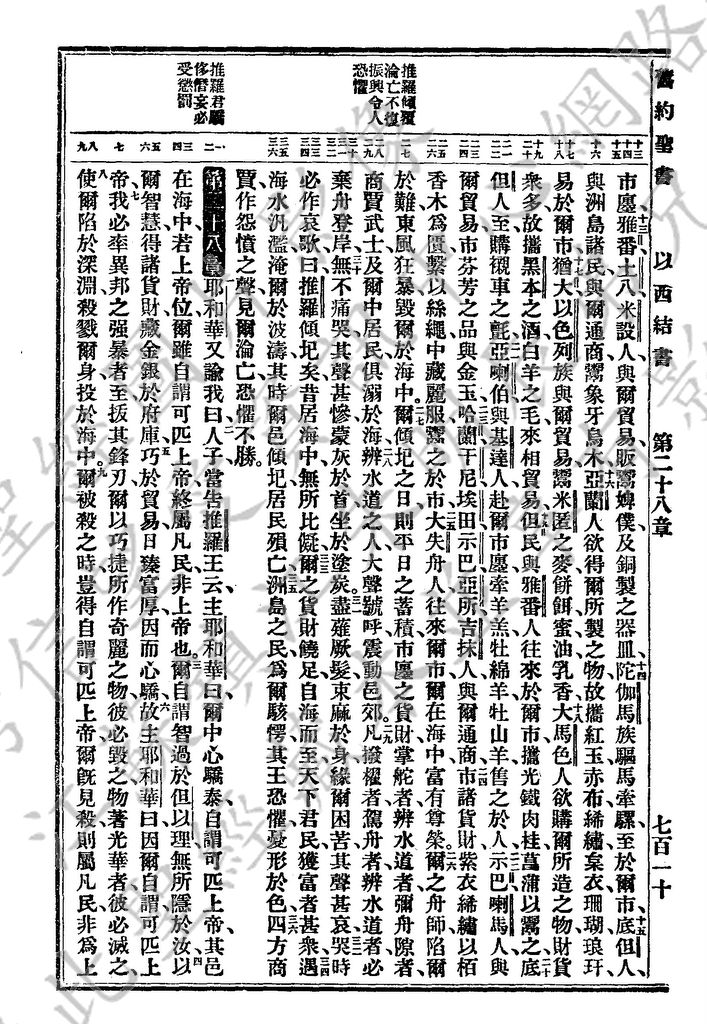 舊約聖書 以西結書 第二十八章 七百一十
推羅傾覆
淪亡不復
振興令人
恐懼
推羅君驕
侈僭妄必
受懲罰
市廛雅番土八米設人與爾貿易販鬻婢僕及銅製之器皿陀伽馬族驅馬牽騾至於爾市底但人
與洲島諸民與爾通商鬻象牙烏木亞蘭人欲得爾所製之物故攜紅玉赤布絺繡枲衣珊瑚琅玕
易於爾市猶大以色列族與爾貿易鬻米匿之麥餅餌蜜油乳香大馬色人欲購爾所造之物財貨
衆多故攜黑本之酒白羊之毛來相貿易但民與雅番人往來於爾市攜光鐵肉桂菖蒲以鬻之底
但人至購襯車之氈亞喇伯與基達人赴爾市廛牽羊羔牡綿羊牡山羊售之於人示巴喇馬人與
爾貿易市芬芳之品與金玉哈蘭干尼埃田示巴亞所吉抹人與爾通商市諸貨財紫衣絺繡以栢
香木爲匱繫以絲繩中藏麗服鬻之於市大失舟人往來爾市爾在海中富有尊榮爾之舟師陷爾
於難東風狂暴毀爾於海中爾傾圮之日則平日之蓄積市廛之貨財掌舵者辨水道者彌舟隙者
商賈武士及爾中居民俱溺於海辨水道之人大聲號呼震動邑郊凡撥櫂者駕舟者辨水道者必
棄舟登岸無不痛哭其聲甚慘蒙灰於首坐於塗炭盡薙厥髮束麻於身緣爾困苦其聲甚哀哭時
必作哀歌曰推羅傾圮矣昔居海中無所比儗爾之貨財饒足自海而至天下君民獲富者甚衆遇
海水汎濫淹爾於波濤其時爾邑傾圮居民殞亡洲島之民爲爾駭愕其王恐懼憂形於色四方商
賈作怨憤之聲見爾淪亡恐懼不勝。
第二十八章 耶和華又諭我曰人子當告推羅王云主耶和華曰爾中心驕泰自謂可匹上帝其邑
在海中若上帝位爾雖自謂可匹上帝終屬凡民非上帝也爾自謂智過於但以理無所隱於汝以
爾智慧得諸貨財藏金銀於府庫巧於貿易日臻富厚因而心驕故主耶和華曰因爾自謂可匹上
帝我必率異邦之强暴者至扳其鋒刃爾以巧捷所作奇麗之物彼必毀之物著光華者彼必滅之
使爾陷於深淵殺戮爾身投於海中爾被殺之時豈得自謂可匹上帝爾旣見殺則屬凡民非爲上